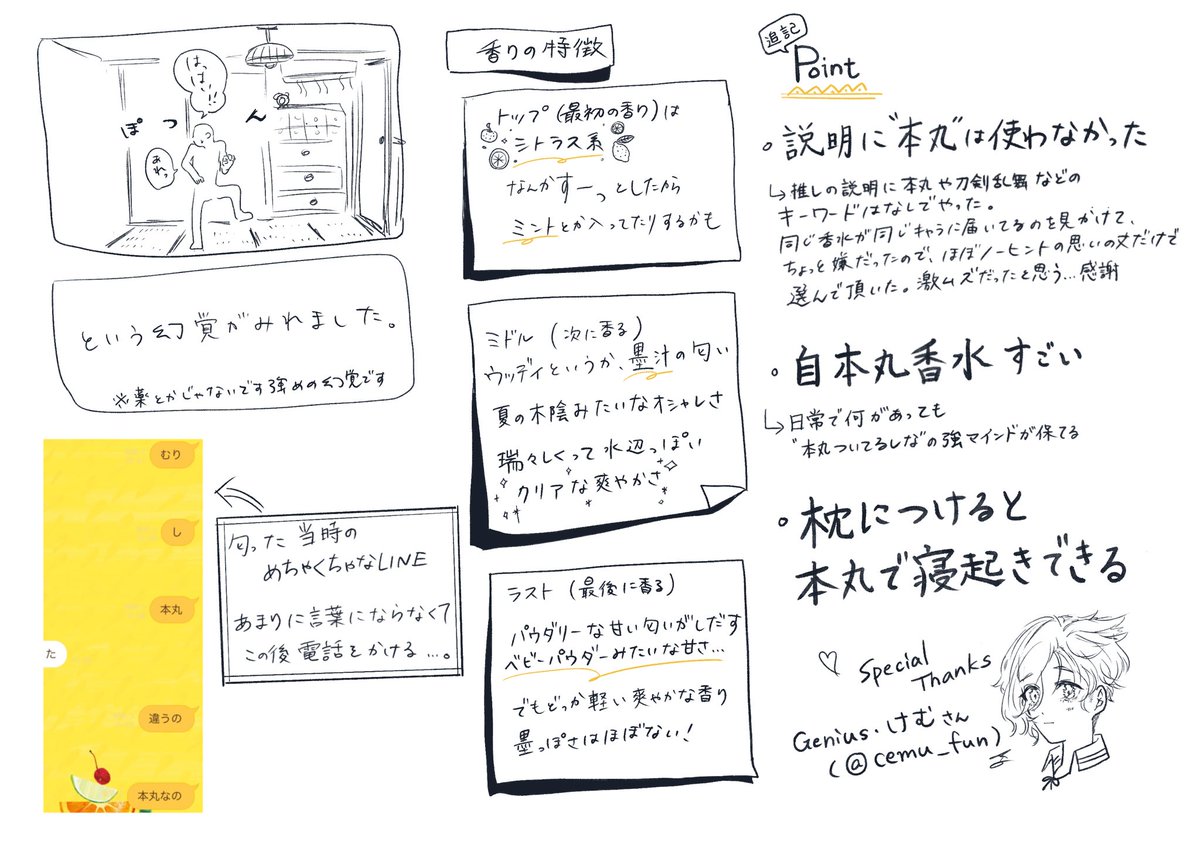 はっはい!!
ぽつーん
あれっ
という幻覚がみれました。
※薬とかじゃないです強めの幻覚です
むり
し
本丸
た
違うの
本丸なの
匂った当時の
めちゃくちゃなLINE
あまりに言葉にならなくて
この後電話をかける…。
香りの特徴
トップ(最初の香り)は
シトラス系
なんかすーっとしたから
ミントとか入ってたりするかも
ミドル (次に香る)
ウッディというか、墨汁の匂い
夏の木陰みたいなオシャレさ
瑞々しくって水辺っぽい
クリアな爽やかさ
ラスト (最後に香る)
パウダリーな甘い匂いがしだす
ベビーパウダーみたいな甘さ…
でもどっか軽い爽やかな香り
墨っぽさはほぼない!
追記
Point
・説明に"本丸"は使わなかった
↳推しの説明に本丸や刀剣乱舞などの
キーワードはなしでやった。
同じ香水が同じキャラに届いてるのを見かけて、
ちょっと嫌だったので、ほぼノーヒントの思いの丈だけで
選んで頂いた。激ムズだったと思う…感謝
・自本丸香水 すごい
↳日常で何があっても
"本丸ついてるしな"の強マインドが保てる
・枕につけると
本丸で寝起きできる
♡ Special
Thanks
Genius・けむさん
(@cemu_fun)